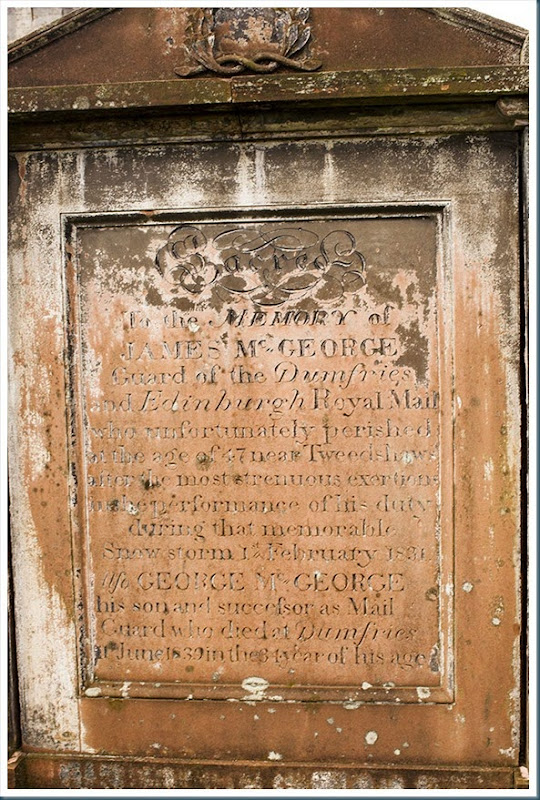 Sacred
To the MEMORY of
JAMES Mc GEORGE
Guard of the Dumfries
and Edinburgh Royal Mail
who unfortunately perished
at the age of 47 near Tweedshaws
after the most strenuous exertions
in the performance of his duty
during that memorable
Snow storm 1st February 1831.
Also GEORGE Mc GEORGE
his son and successor as Mail
Guard who died at Dumfries
June 1839 in the 34 year of his age